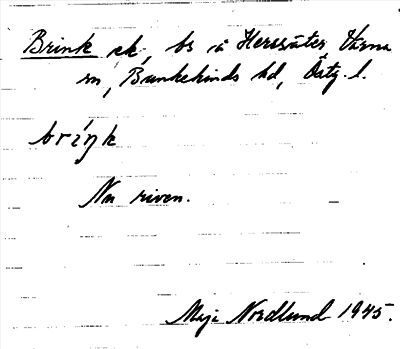 Brink ck, bs å Herrsäter Värna
sn, Bankekinds hd, Östg. l.
brıŋ́k
Nu riven.
Maja Nordlund 1945.